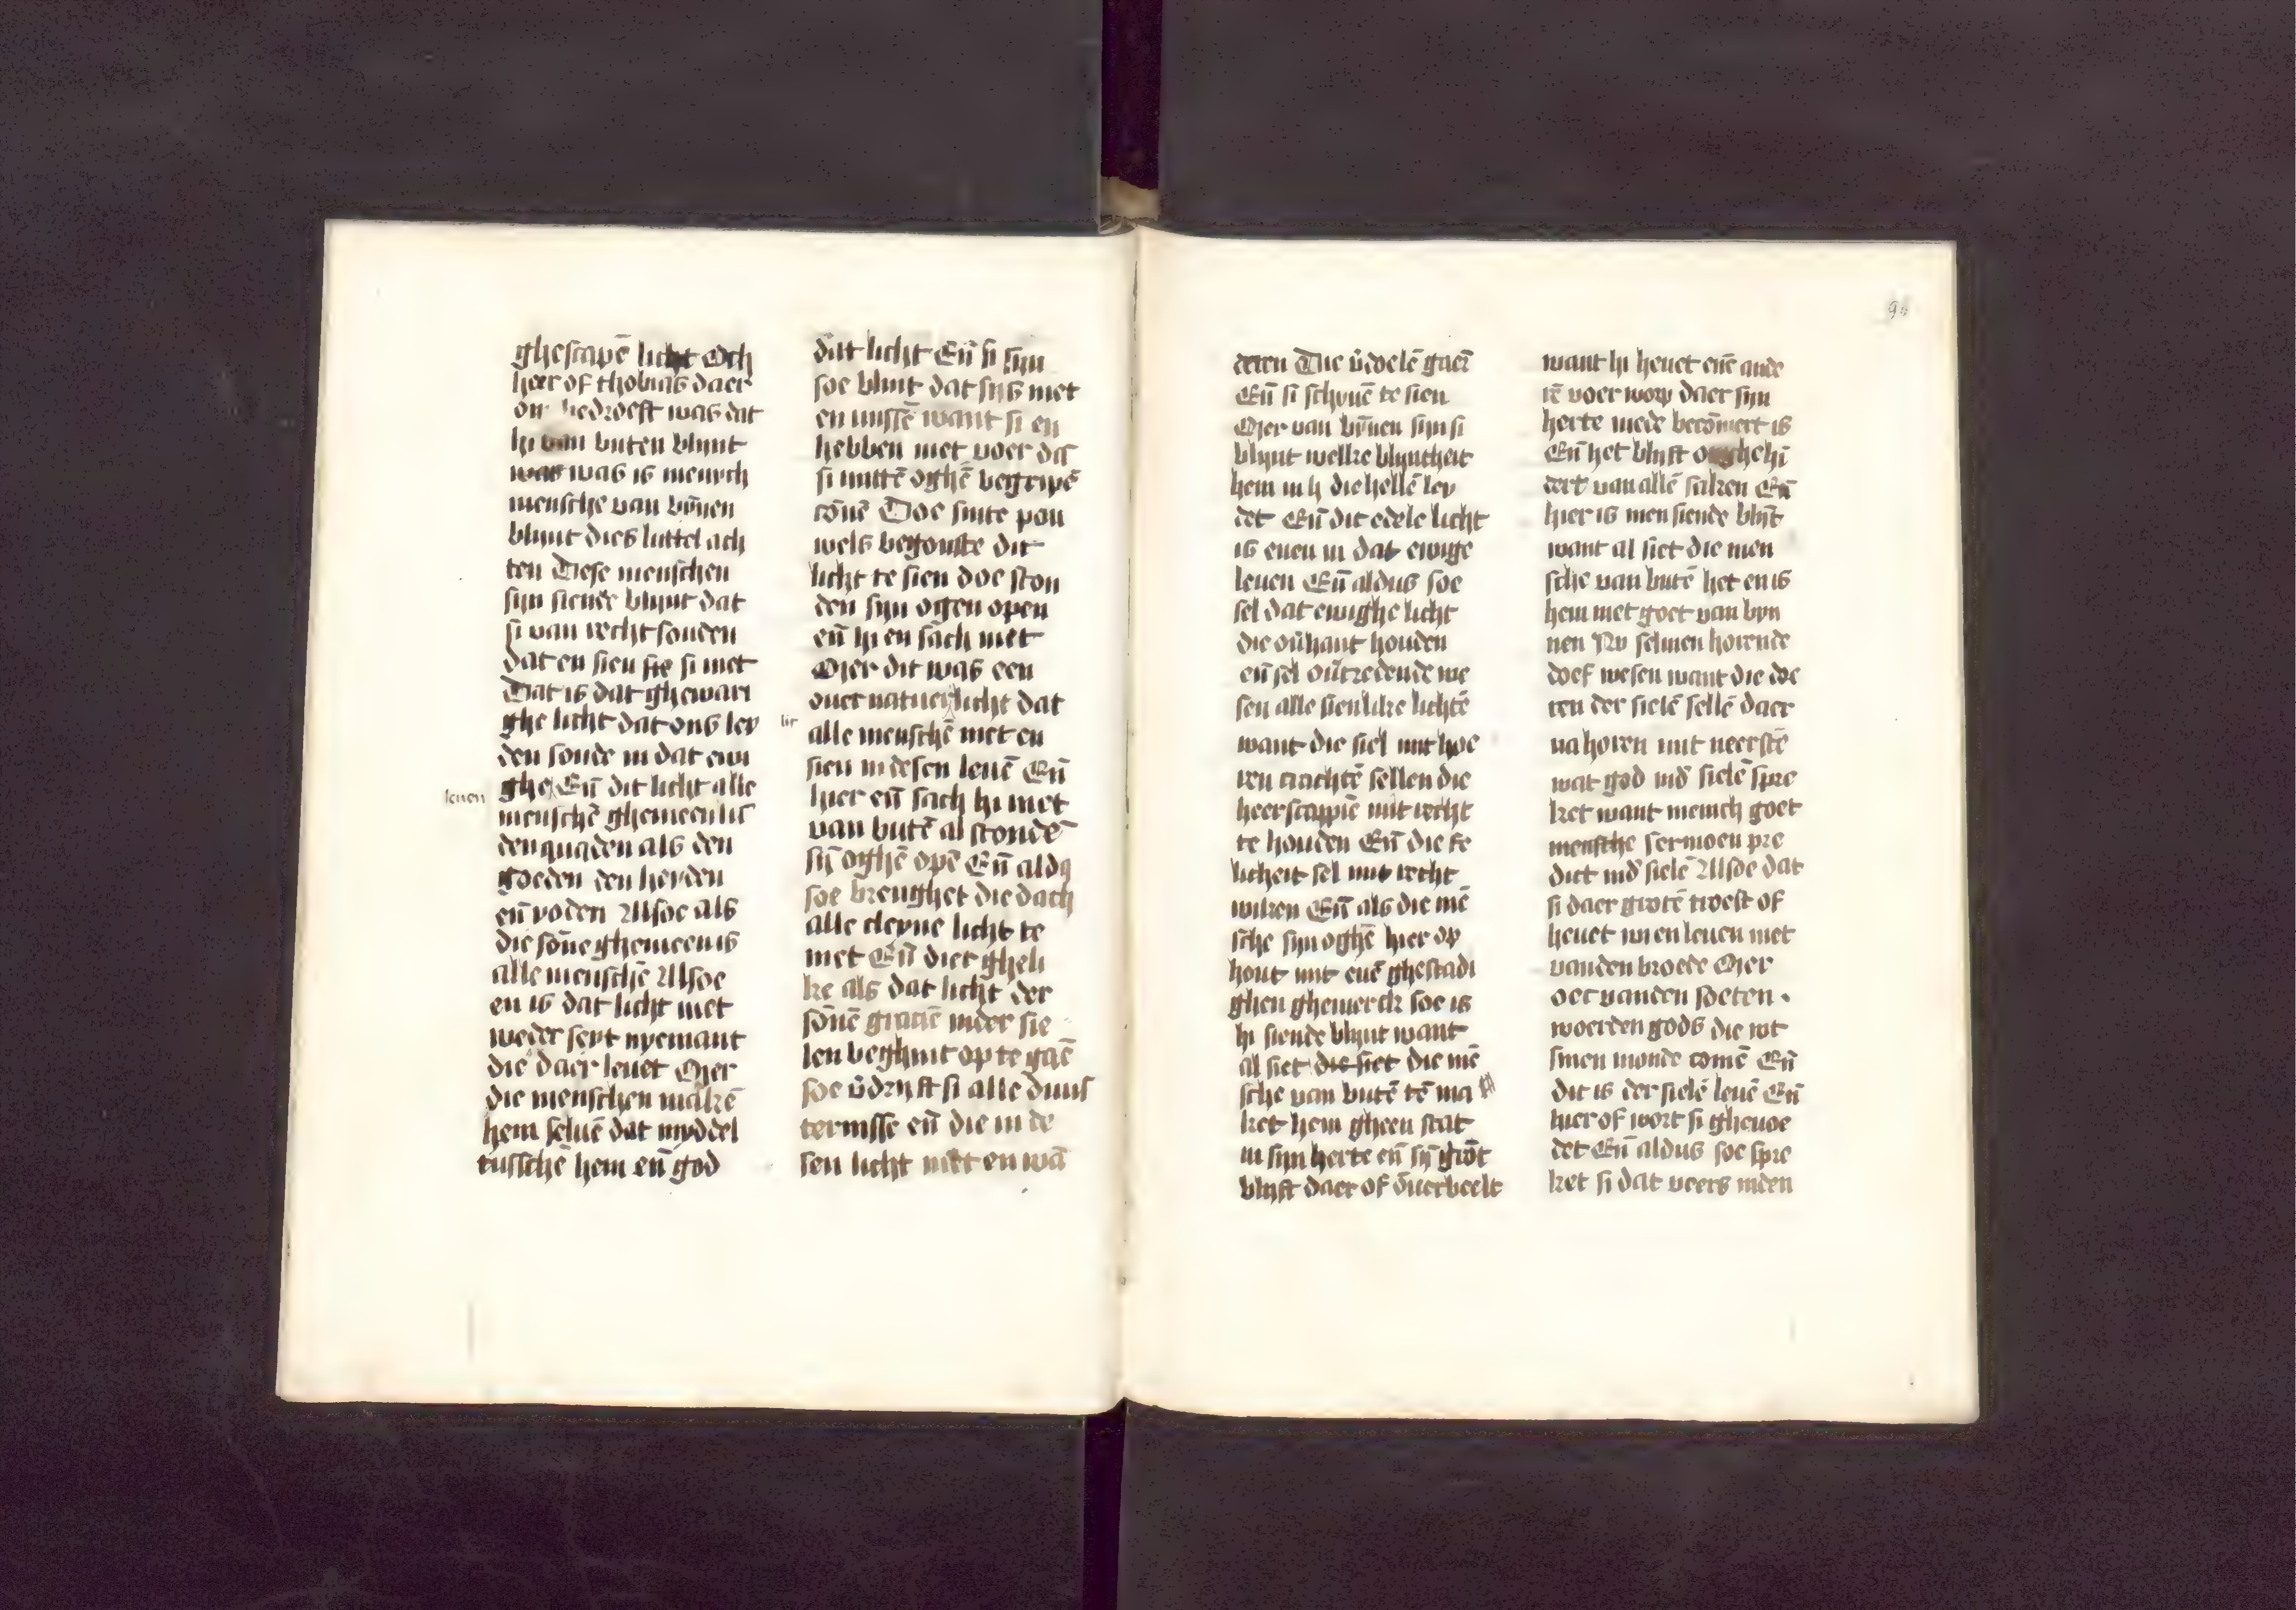 ghescapē licht Och
heer of thobias daer
om bedroeft was dat
hi van buten blynt
was was is menich
mensche van bynnen
blynt dies luttel ach
ten Dese menschen
syn siende blynt dat
si van recht souden
dat en sien sie si niet
Dat is dat ghewari
ghe licht dat ons ley
den soude in dat ewi
leuen
ghe Eñ dit licht alle
menschē ghemeen is
den quaden als den
goeden den heyden
eñ yoden Alsoe als
die sōne ghemeen is
alle menschē Alsoe
en is dat licht niet
weder seyt nyemant
die daer leuet Mer
die menschen makē
hem seluē dat myddel
tusschē hem eñ god
dat licht Eñ si syn
soe blint dat syis niet
en missē want si en
hebben niet voer dat
si mittē oghē begripē
cōnē Doe sinte pau
wels begonste dit
licht te sien doe ston
den syn ogen open
eñ hi en sach niet
Mer dit was een
ouer natuerlicht dat
lic
alle menschē niet en
sien in desen leuē Eñ
hier eñ sach hi niet
van butē al stondē
sȳ oghē opē Eñ aldꝰ
soe brenghet die dach
alle cleyne licht te
niet Eñ dier gheli
ke als dat licht der
sōnē graciē inder sie
len beghint op te gaē
soe v̄dryft si alle duus
ternisse eñ die in de
sen licht niet en wā
deren Die v̄doelē gaen
Eñ si schynē te sien
Mer van bȳnen syn si
blynt welke blyntheit
hem in ts die hellē ley
det Eñ dit edele licht
is euen in dat ewige
leuen Eñ aldus soe
sel dat ewighe licht
die ouhant houden
eñ sel ou̇tredende we
sen alle sienlike lichtē
want die siel mit hoe
ren crachtē sellen die
heerscappie mit recht
te houden Eñ die se
licheit sel mit recht
wiken Eñ als die mē
sche syn oghē hier op
hout mit enē ghestadi
ghen ghemerck soe is
hi siende blynt want
al siet die siet die mē
sche van butē tē ma
ket hem gheen stat
in syn herte eñ sȳ grōt
blyft daer of ōuerbeelt
want hi heuet enē ande
rē voer worp daer syn
herte mede becōmert is
Eñ het blyft onghehī
dert van allē saken Eñ
hier is men siende blȳt
want al siet die men
sche van butē het en is
hem niet goet van byn
nen Nv selmen horende
doef wesen want die oe
ren der sielē sellē daer
na horen mit neerstē
wat god inđ sielē spre
ket want menich goet
mensche sermoen pre
dict inđ sielē Alsoe dat
si daer grotē troest of
heuet wi en leuen niet
vanden broede Mer
oec vanden soeten
woerden gods die wt
sinen monde comē Eñ
dit is der sielē leuē Eñ
hier of wort si gheuoe
det Eñ aldus soe spre
ket si dat veers inden